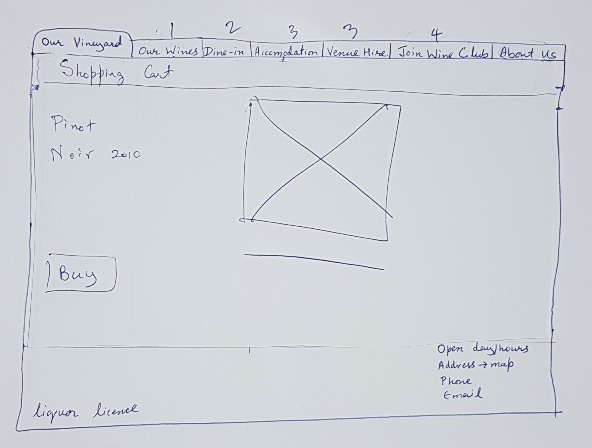 1 2 3 3 4
Our Vineyard Our Wines Dine-in Accomodation Venue Hire Join Wine Club About Us
Shopping Cart
Pinot
Noir 2010
Buy
Open day/hours
Address → map
Phone
Email
liquor licence